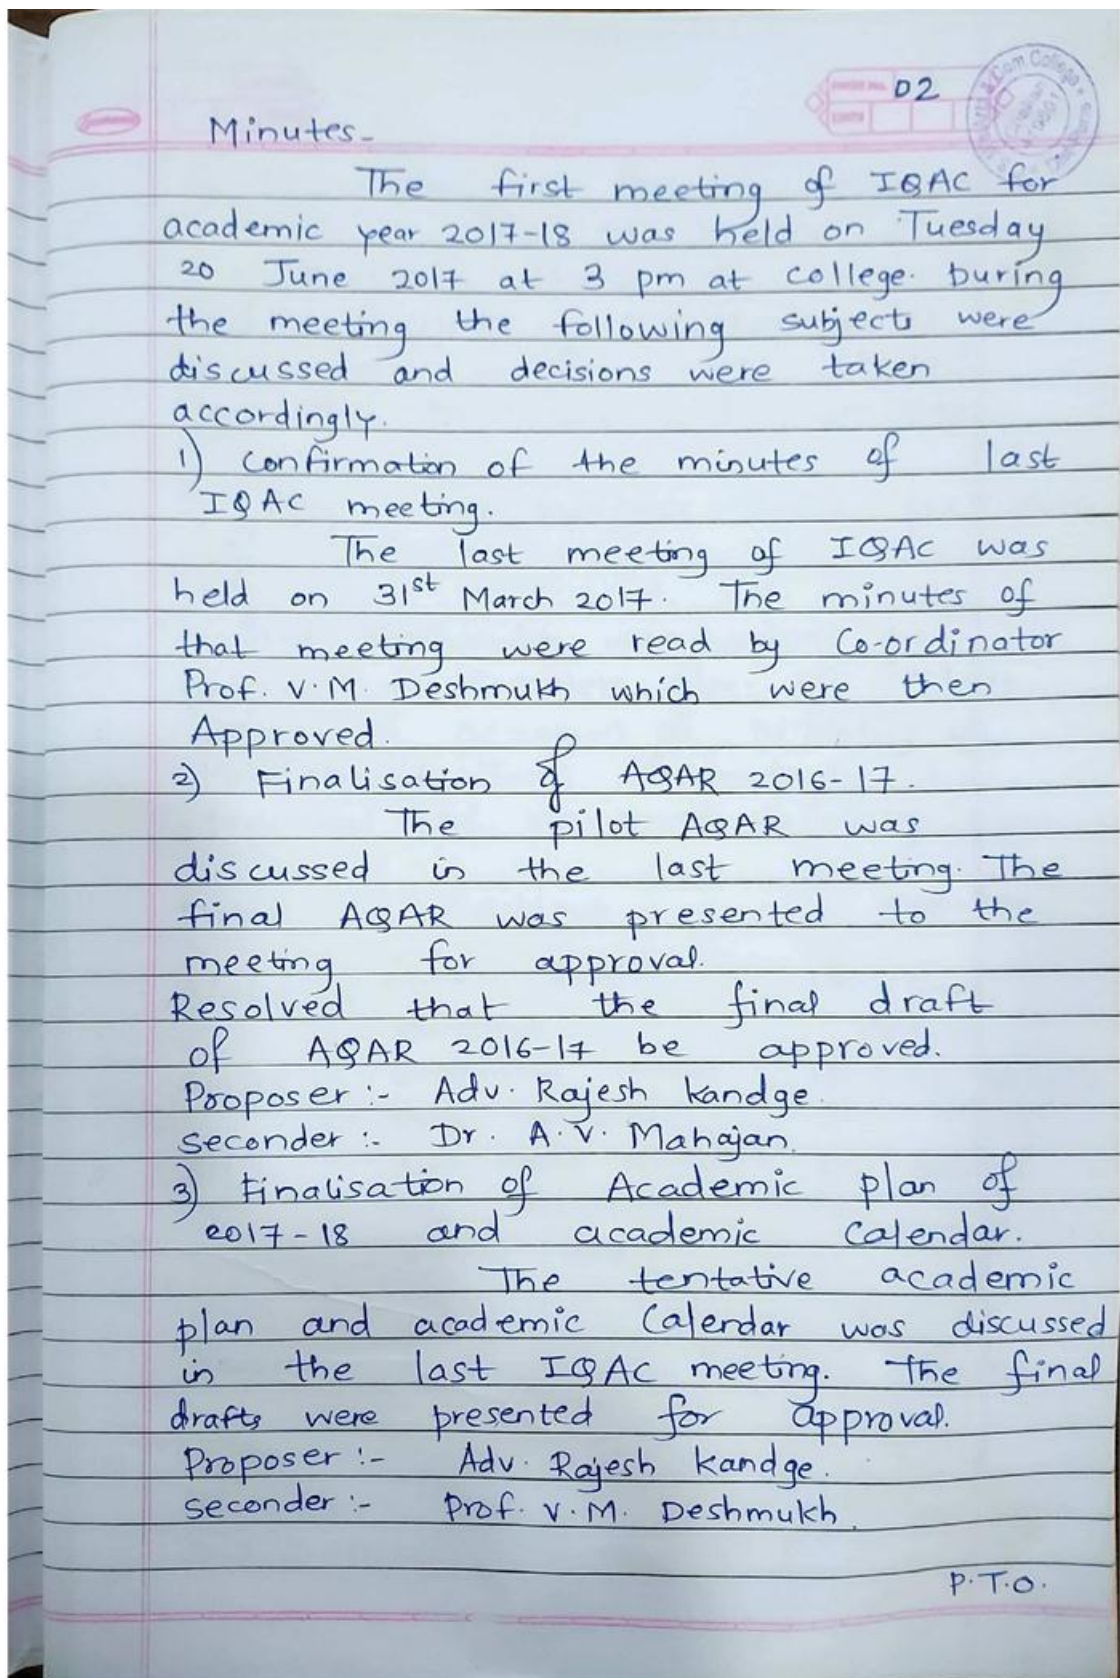 02
Minutes-
The first meeting of IQAC for
academic year 2017-18 was held on Tuesday
20 June 2017 at 3 pm at college. During
the meeting the following subjects were
discussed and decisions were taken
accordingly.
1) Confirmation of the minutes of last
IQAC meeting.
The last meeting of IQAC was
held on 31st March 2017. The minutes of
that meeting were read by Co-ordinator
Prof. V.M. Deshmukh which were then
Approved.
2) Finalisation of AQAR 2016-17.
The pilot AQAR was
discussed in the last meeting. The
final AQAR was presented to the
meeting for approval.
Resolved that the final draft
of AQAR 2016-17 be approved.
Proposer :- Adv. Rajesh Kandge.
Seconder :- Dr. A.V. Mahajan.
3) Finalisation of Academic plan of
2017-18 and academic Calendar.
The tentative academic
plan and academic Calendar was discussed
in the last IQAC meeting. The final
drafts were presented for approval.
Proposer :- Adv. Rajesh Kandge.
Seconder :- Prof. V.M. Deshmukh.
P.T.O.